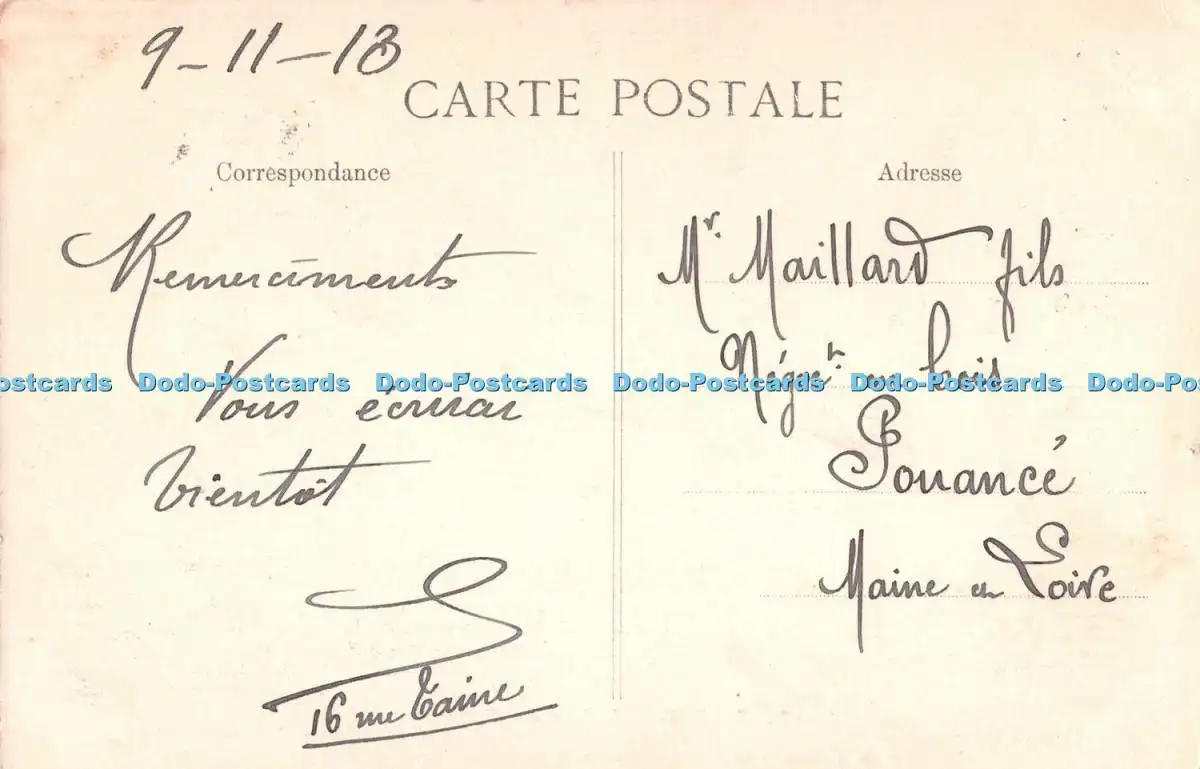 9-11-13
CARTE POSTALE
Correspondance
Remerciments
Vous écrirai
bientôt
16 rue Taine
Adresse
Mr. Maillard fils
Négt. en bois
Pouancé
Maine en Loire
Postcards Dodo-Postcards Dodo-Postcards Dodo-Postcards Dodo-Postcards Dodo-Po